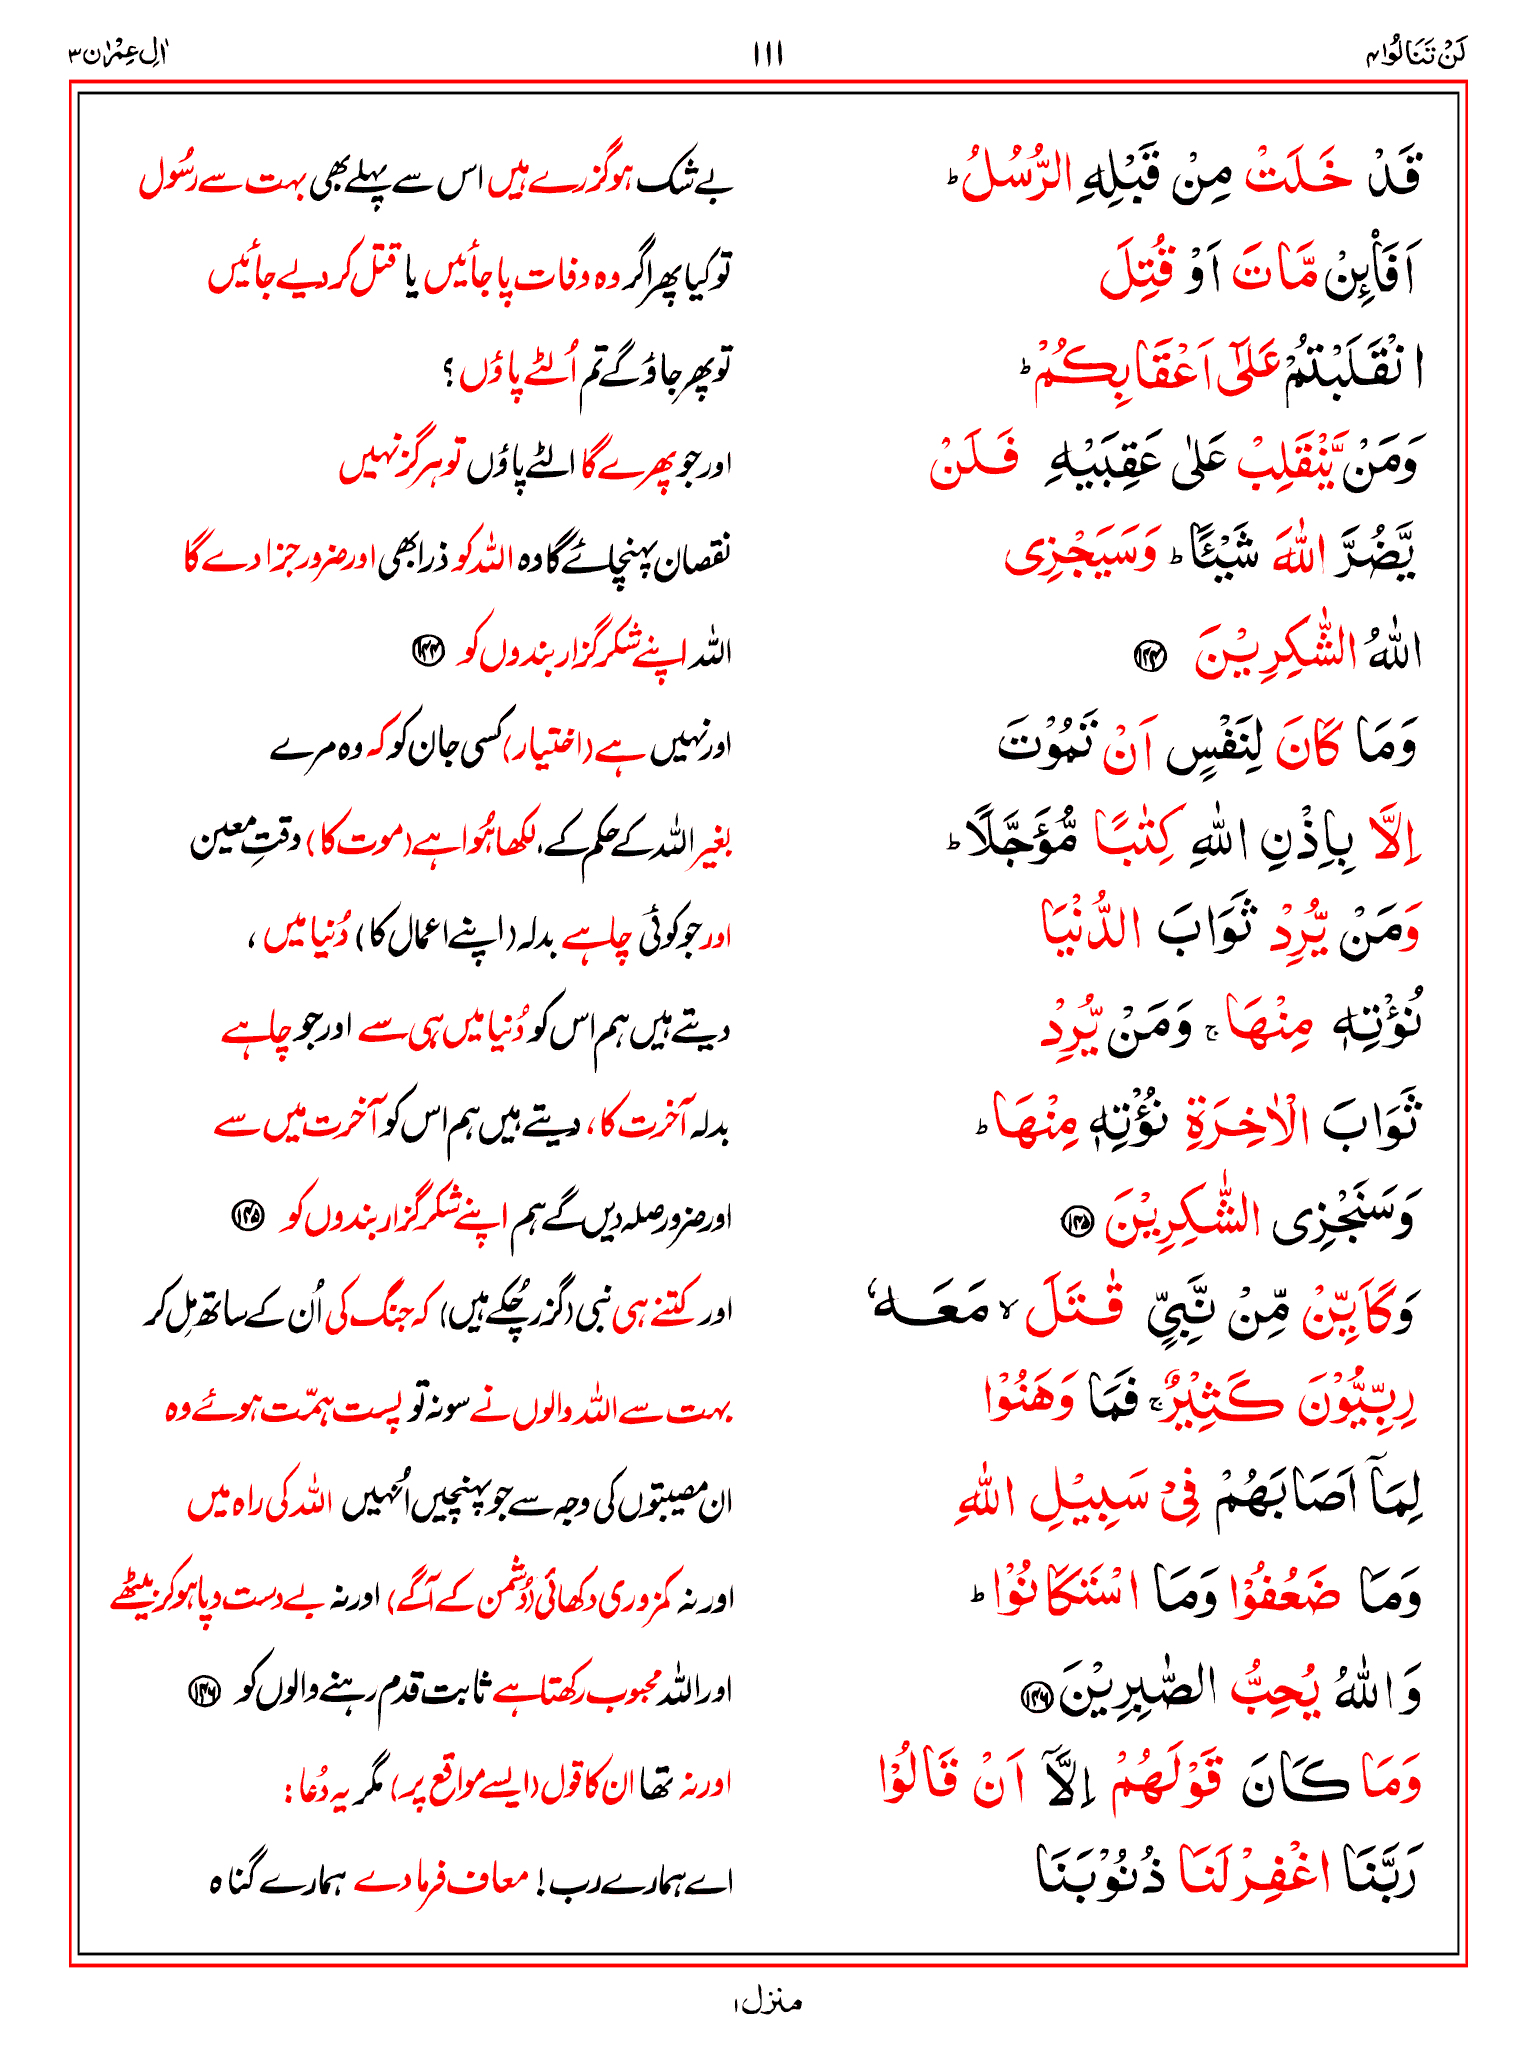 لَنْ تَنَالُوا ۴ ۱۱۱ اٰلِ عِمْرٰن ۳
قَدْ خَلَتْ مِنْ قَبْلِهِ الرُّسُلُ ؕ بے شک ہو گزرے ہیں اس سے پہلے بھی بہت سے رسُول
اَفَا۠ئِنْ مَّاتَ اَوْ قُتِلَ تو کیا پھر اگر وہ وفات پا جائیں یا قتل کر دیے جائیں
انْقَلَبْتُمْ عَلٰۤى اَعْقَابِكُمْ ؕ تو پھر جاؤ گے تم اُلٹے پاؤں ؟
وَمَنْ يَّنْقَلِبْ عَلٰى عَقِبَيْهِ فَلَنْ اور جو پھرے گا الٹے پاؤں تو ہرگز نہیں
يَّضُرَّ اللّٰهَ شَيْـًٔا ؕ وَسَيَجْزِى نقصان پہنچائے گا وہ اللہ کو ذرا بھی اور ضرور جزا دے گا
اللّٰهُ الشّٰكِرِيْنَ ۝۱۴۴ اللہ اپنے شکر گزار بندوں کو ۝۱۴۴
وَمَا كَانَ لِنَفْسٍ اَنْ تَمُوْتَ اور نہیں ہے (اختیار) کسی جان کو کہ وہ مرے
اِلَّا بِاِذْنِ اللّٰهِ كِتٰبًا مُّؤَجَّلًا ؕ بغیر اللہ کے حکم کے، لکھا ہُوا ہے (موت کا) وقتِ معین
وَمَنْ يُّرِدْ ثَوَابَ الدُّنْيَا اور جو کوئی چاہے بدلہ (اپنے اعمال کا) دُنیا میں ،
نُؤْتِهٖ مِنْهَا ۚ وَمَنْ يُّرِدْ دیتے ہیں ہم اس کو دُنیا میں ہی سے اور جو چاہے
ثَوَابَ الْاٰخِرَةِ نُؤْتِهٖ مِنْهَا ؕ بدلہ آخرت کا، دیتے ہیں ہم اس کو آخرت میں سے
وَسَنَجْزِى الشّٰكِرِيْنَ ۝۱۴۵ اور ضرور صلہ دیں گے ہم اپنے شکر گزار بندوں کو ۝۱۴۵
وَكَاَيِّنْ مِّنْ نَّبِىٍّ قٰتَلَ ۙ مَعَهٗ اور کتنے ہی نبی (گزر چُکے ہیں) کہ جنگ کی اُن کے ساتھ مِل کر
رِبِّيُّوْنَ كَثِيْرٌ ۚ فَمَا وَهَنُوْا بہت سے اللہ والوں نے سو نہ تو پست ہمّت ہوئے وہ
لِمَاۤ اَصَابَهُمْ فِىْ سَبِيْلِ اللّٰهِ ان مصیبتوں کی وجہ سے جو پہنچیں اُنہیں اللہ کی راہ میں
وَمَا ضَعُفُوْا وَمَا اسْتَكَانُوْا ؕ اور نہ کمزوری دکھائی (دُشمن کے آگے) اور نہ بے دست و پا ہو کر بیٹھے
وَاللّٰهُ يُحِبُّ الصّٰبِرِيْنَ ۝۱۴۶ اور اللہ محبوب رکھتا ہے ثابت قدم رہنے والوں کو ۝۱۴۶
وَمَا كَانَ قَوْلَهُمْ اِلَّاۤ اَنْ قَالُوْا اور نہ تھا ان کا قول (ایسے مواقع پر) مگر یہ دُعا :
رَبَّنَا اغْفِرْ لَنَا ذُنُوْبَنَا اے ہمارے رب ! معاف فرما دے ہمارے گناہ
منزل ۱